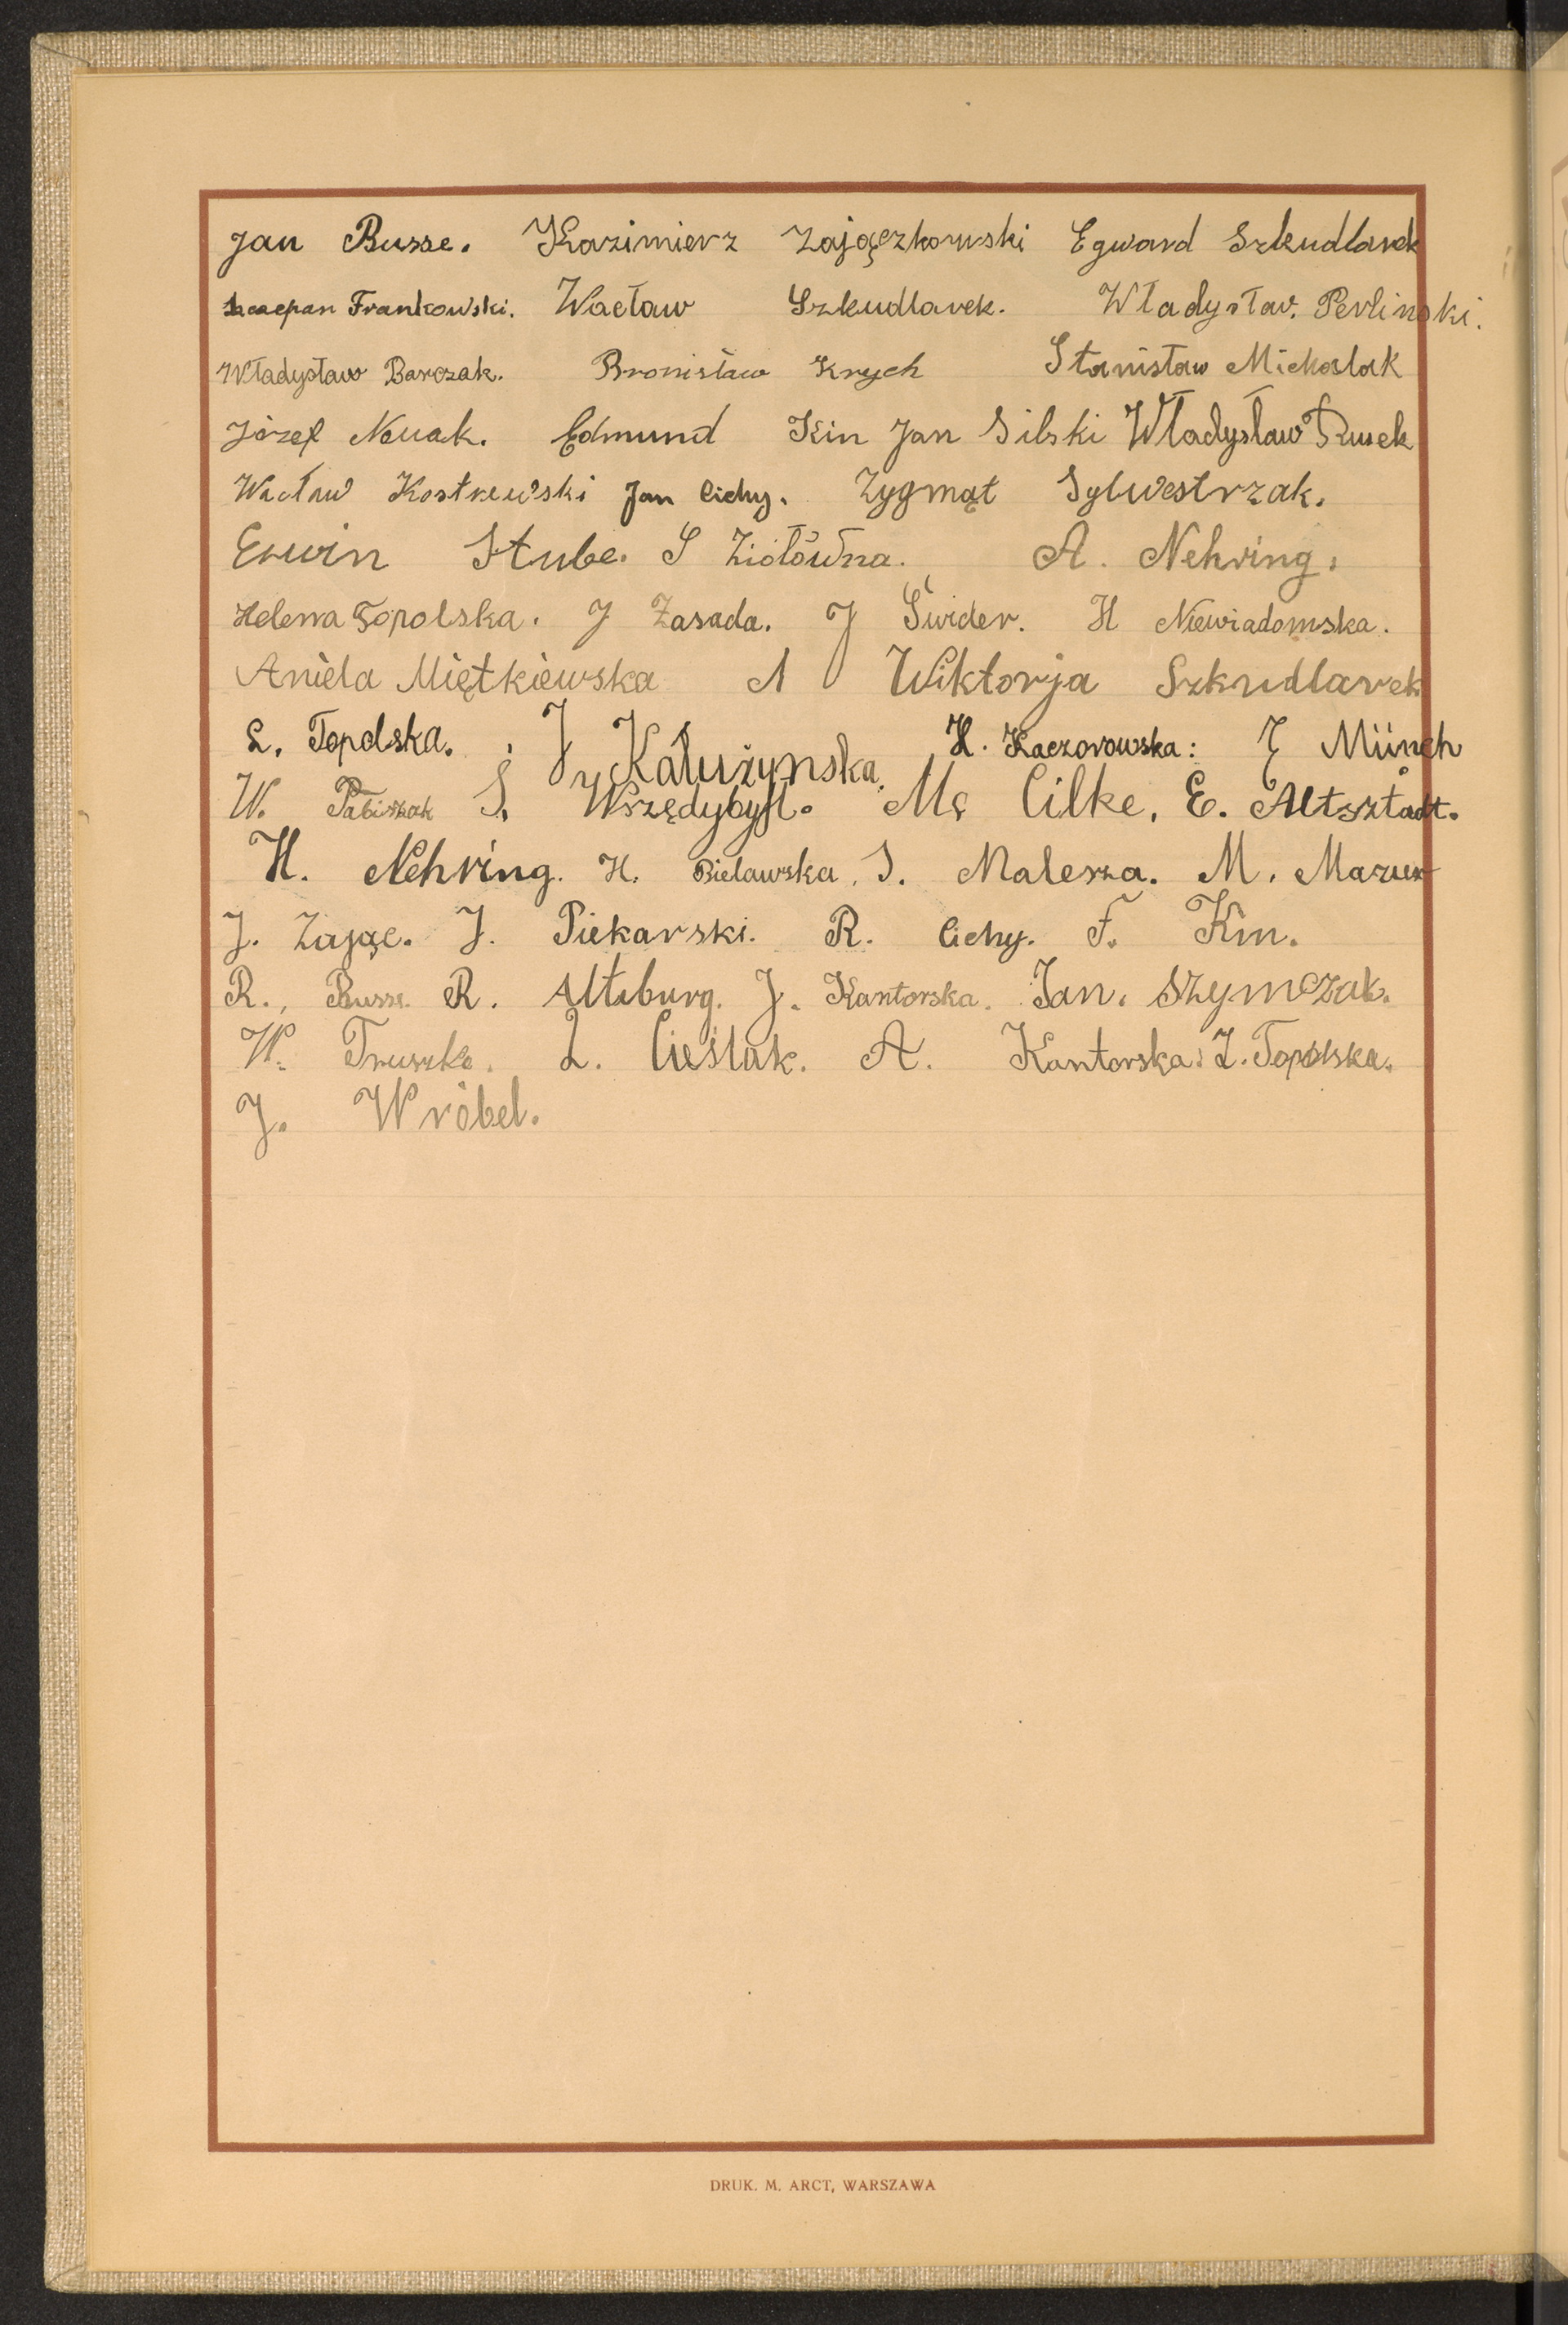 Jan Busse. Kazimierz Zajączkowski Egward Szkudlarek
Szczepan Frankowski. Wacław Szkudlarek. Władysław. Perlinski.
Władysław Barczak. Bronisław Krych Stanisław Michalak
Józef Nowak. Edmund Kin Jan Silski Władysław Rusek
Wacław Kostrewski Jan Cichy. Zygmąt Sylwestrzak.
Erwin Stube. S Ziołówna. A. Nehring.
Helena Topolska. J Zasada. J Świder. H Niewiadomska.
Aniela Miętkiewska A Wiktorja Szkudlarek
L. Topolska. J Kałużynska. H. Kaczorowska: J Münch
W. Pabiszak S. Wszędybył. M. Cilke. E. Altsztadt.
H. Nehring. H. Bielawska. S. Malesza. M. Mazur
J. Zając. J. Piekarski. R. Cichy. F. Kin.
R. Busse. R. Altenburg. J. Kantorska. Jan. Szymczak.
W. Truszka. L. Cieślak. A. Kantorska. Z. Topolska.
J. Wróbel.
DRUK. M. ARCT, WARSZAWA